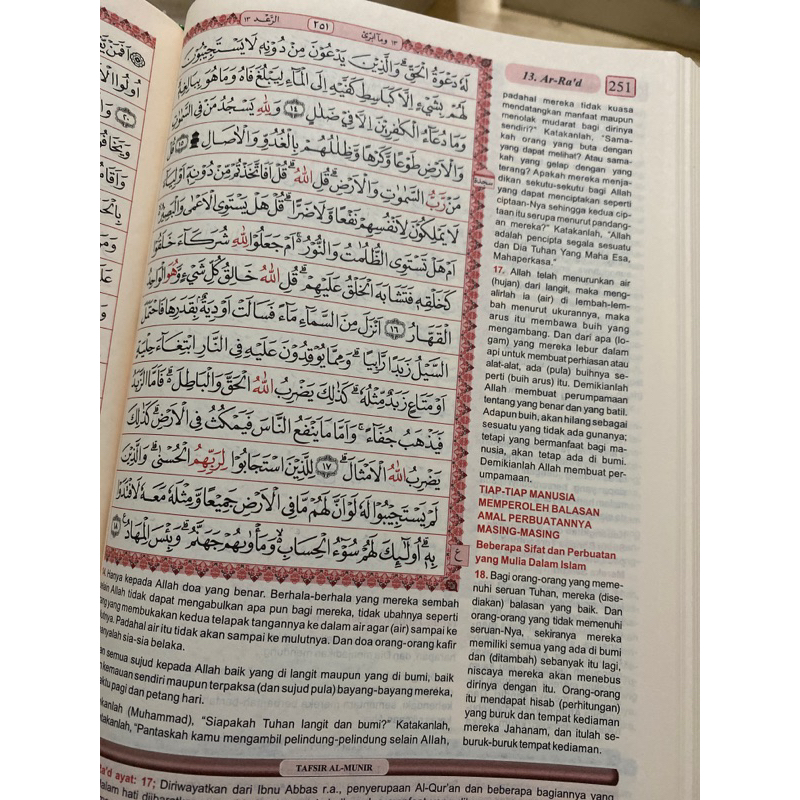 ١٣ وما ابرئ
٢٥١
الرّعد ١٣
لَهٗ دَعْوَةُ الْحَقِّۗ وَالَّذِيْنَ يَدْعُوْنَ مِنْ دُوْنِهٖ لَا يَسْتَجِيْبُوْنَ
لَهُمْ بِشَيْءٍ اِلَّا كَبَاسِطِ كَفَّيْهِ اِلَى الْمَاۤءِ لِيَبْلُغَ فَاهُ وَمَا هُوَ بِبَالِغِهٖۗ
وَمَا دُعَاۤءُ الْكٰفِرِيْنَ اِلَّا فِيْ ضَلٰلٍ ١٤ وَلِلّٰهِ يَسْجُدُ مَنْ فِى السَّمٰوٰتِ
وَالْاَرْضِ طَوْعًا وَّكَرْهًا وَّظِلٰلُهُمْ بِالْغُدُوِّ وَالْاٰصَالِ ۩ ١٥ قُلْ
مَنْ رَّبُّ السَّمٰوٰتِ وَالْاَرْضِۗ قُلِ اللّٰهُ ۗ قُلْ اَفَاتَّخَذْتُمْ مِّنْ دُوْنِهٖٓ اَوْلِيَاۤءَ
لَا يَمْلِكُوْنَ لِاَنْفُسِهِمْ نَفْعًا وَّلَا ضَرًّاۗ قُلْ هَلْ يَسْتَوِى الْاَعْمٰى وَالْبَصِيْرُ ەۙ
اَمْ هَلْ تَسْتَوِى الظُّلُمٰتُ وَالنُّوْرُ ەۚ اَمْ جَعَلُوْا لِلّٰهِ شُرَكَاۤءَ خَلَقُوْا
كَخَلْقِهٖ فَتَشَابَهَ الْخَلْقُ عَلَيْهِمْۗ قُلِ اللّٰهُ خَالِقُ كُلِّ شَيْءٍ وَّهُوَ الْوَاحِدُ
الْقَهَّارُ ١٦ اَنْزَلَ مِنَ السَّمَاۤءِ مَاۤءً فَسَالَتْ اَوْدِيَةٌ ۢ بِقَدَرِهَا فَاحْتَمَلَ
السَّيْلُ زَبَدًا رَّابِيًا ۗ وَمِمَّا يُوْقِدُوْنَ عَلَيْهِ فِى النَّارِ ابْتِغَاۤءَ حِلْيَةٍ
اَوْ مَتَاعٍ زَبَدٌ مِّثْلُهٗ ۗ كَذٰلِكَ يَضْرِبُ اللّٰهُ الْحَقَّ وَالْبَاطِلَ ەۗ فَاَمَّا الزَّبَدُ
فَيَذْهَبُ جُفَاۤءً ۚ وَاَمَّا مَا يَنْفَعُ النَّاسَ فَيَمْكُثُ فِى الْاَرْضِۗ كَذٰلِكَ
يَضْرِبُ اللّٰهُ الْاَمْثَالَ ۗ ١٧ لِلَّذِيْنَ اسْتَجَابُوْا لِرَبِّهِمُ الْحُسْنٰىۗ وَالَّذِيْنَ
لَمْ يَسْتَجِيْبُوْا لَهٗ لَوْ اَنَّ لَهُمْ مَّا فِى الْاَرْضِ جَمِيْعًا وَّمِثْلَهٗ مَعَهٗ لَافْتَدَوْا
بِهٖ ۗ اُولٰۤىِٕكَ لَهُمْ سُوْۤءُ الْحِسَابِ ەۙ وَمَأْوٰىهُمْ جَهَنَّمُ ۗ وَبِئْسَ الْمِهَادُ ࣖ ١٨
سجدة
ع
14. Hanya kepada Allah doa yang benar. Berhala-berhala yang mereka sembah
selain Allah tidak dapat mengabulkan apa pun bagi mereka, tidak ubahnya seperti
yang membukakan kedua telapak tangannya ke dalam air agar (air) sampai ke
Padahal air itu tidak akan sampai ke mulutnya. Dan doa orang-orang kafir
sia-sia belaka.
semua sujud kepada Allah baik yang di langit maupun yang di bumi, baik
kemauan sendiri maupun terpaksa (dan sujud pula) bayang-bayang mereka,
pagi dan petang hari.
(Muhammad), “Siapakah Tuhan langit dan bumi?” Katakanlah,
“Pantaskah kamu mengambil pelindung-pelindung selain Allah,
13. Ar-Ra'd
251
padahal mereka tidak kuasa
mendatangkan manfaat maupun
menolak mudarat bagi dirinya
sendiri?” Katakanlah, “Sama-
kah orang yang buta dengan
yang dapat melihat? Atau sama-
kah yang gelap dengan yang
terang? Apakah mereka menja-
dikan sekutu-sekutu bagi Allah
yang dapat menciptakan seperti
ciptaan-Nya sehingga kedua cip-
taan itu serupa menurut pandang-
an mereka?” Katakanlah, “Allah
adalah pencipta segala sesuatu
dan Dia Tuhan Yang Maha Esa,
Mahaperkasa.”
17. Allah telah menurunkan air
(hujan) dari langit, maka meng-
alirlah ia (air) di lembah-lem-
bah menurut ukurannya, maka
arus itu membawa buih yang
mengambang. Dan dari apa (lo-
gam) yang mereka lebur dalam
api untuk membuat perhiasan atau
alat-alat, ada (pula) buihnya se-
perti (buih arus) itu. Demikianlah
Allah membuat perumpamaan
tentang yang benar dan yang batil.
Adapun buih, akan hilang sebagai
sesuatu yang tidak ada gunanya;
tetapi yang bermanfaat bagi ma-
nusia, akan tetap ada di bumi.
Demikianlah Allah membuat per-
umpamaan.
TIAP-TIAP MANUSIA
MEMPEROLEH BALASAN
AMAL PERBUATANNYA
MASING-MASING
Beberapa Sifat dan Perbuatan
yang Mulia Dalam Islam
18. Bagi orang-orang yang meme-
nuhi seruan Tuhan, mereka (dise-
diakan) balasan yang baik. Dan
orang-orang yang tidak memenuhi
seruan-Nya, sekiranya mereka
memiliki semua yang ada di bumi
dan (ditambah) sebanyak itu lagi,
niscaya mereka akan menebus
dirinya dengan itu. Orang-orang
itu mendapat hisab (perhitungan)
yang buruk dan tempat kediaman
mereka Jahanam, dan itulah se-
buruk-buruk tempat kediaman.
TAFSIR AL-MUNIR
ayat: 17; Diriwayatkan dari Ibnu Abbas r.a., penyerupaan Al-Qur'an dan beberapa bagiannya yang